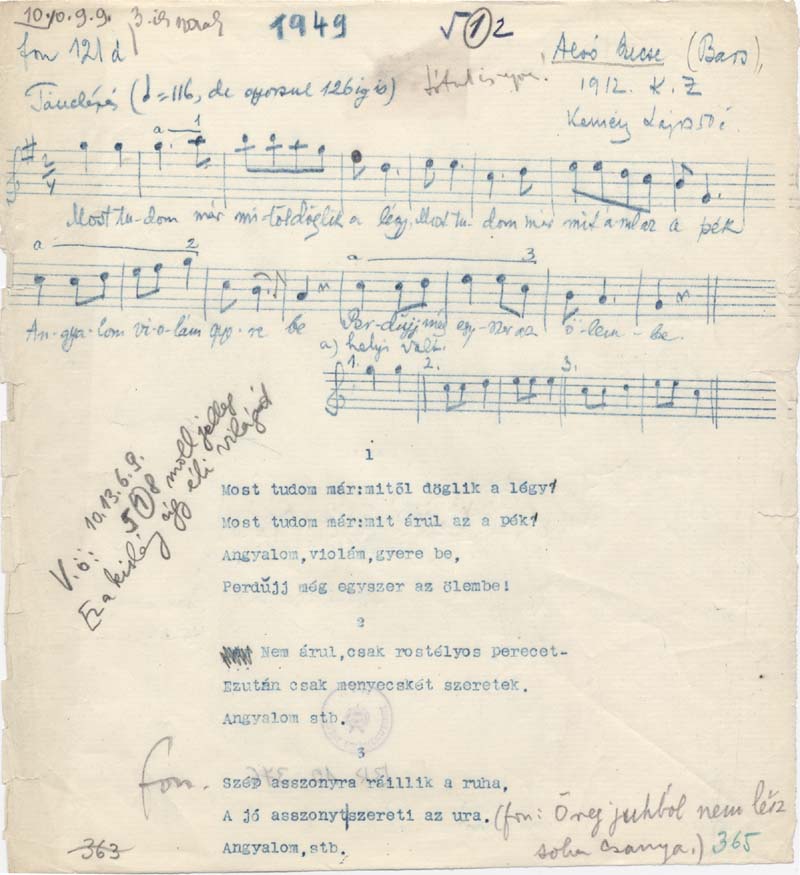 10.10.9.9. 3-ik sorok 1949 √ 1 2
fon 121 d
Alsó Szecse (Bars),
1912. K. Z
Tánclépés (♩=116, de gyorsul 126 ig is)
Kemény Lajos 50 é.
a 1
2/4
Most tu-dom már mi-től döglik a légy, Most tu-dom már mit árul az a pék
a 2 a 3
An-gya-lom vi-o-lám gye-re be Per-dűjj még egy-szer az ö-lem-be.
a) helyi vált.
1. 2. 3.
V.ö: 10.13.6.9.
5 1 8 moll jelleg
Ez a kislány úgy éli világát
1
Most tudom már:mitől döglik a légy?
Most tudom már:mit árul az a pék?
Angyalom,violám,gyere be,
Perdűjj még egyszer az ölembe!
2
Nem árul,csak rostélyos perecet-
Ezután csak menyecskét szeretek.
Angyalom stb.
3
fon. Szép asszonyra ráillik a ruha,
A jó asszonyt szereti az ura. (fon: Öreg juhból nem lész
soha csanya.) 365
363 Angyalom,stb.